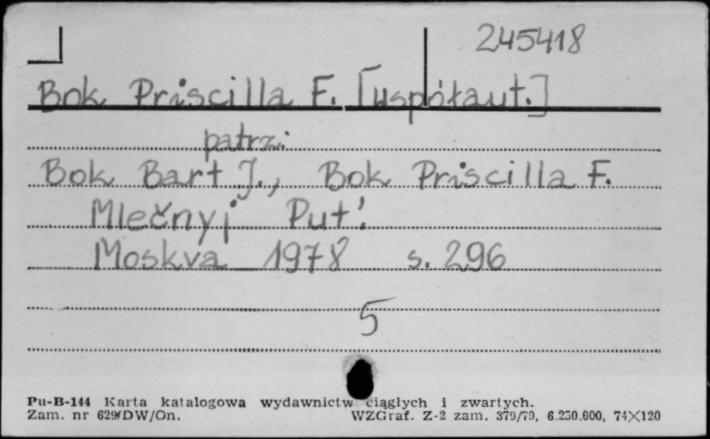 245418
Bok Priscilla F. [współaut.]
patrz:
Bok Bart J., Bok Priscilla F.
Mlečnyj Put'
Moskva 1978 s. 296
5
Pu-B-144 Karta katalogowa wydawnictw ciągłych i zwartych.
Zam. nr 629/DW/On. WZGraf. Z-2 zam. 379/79, 6.250.000, 74×120